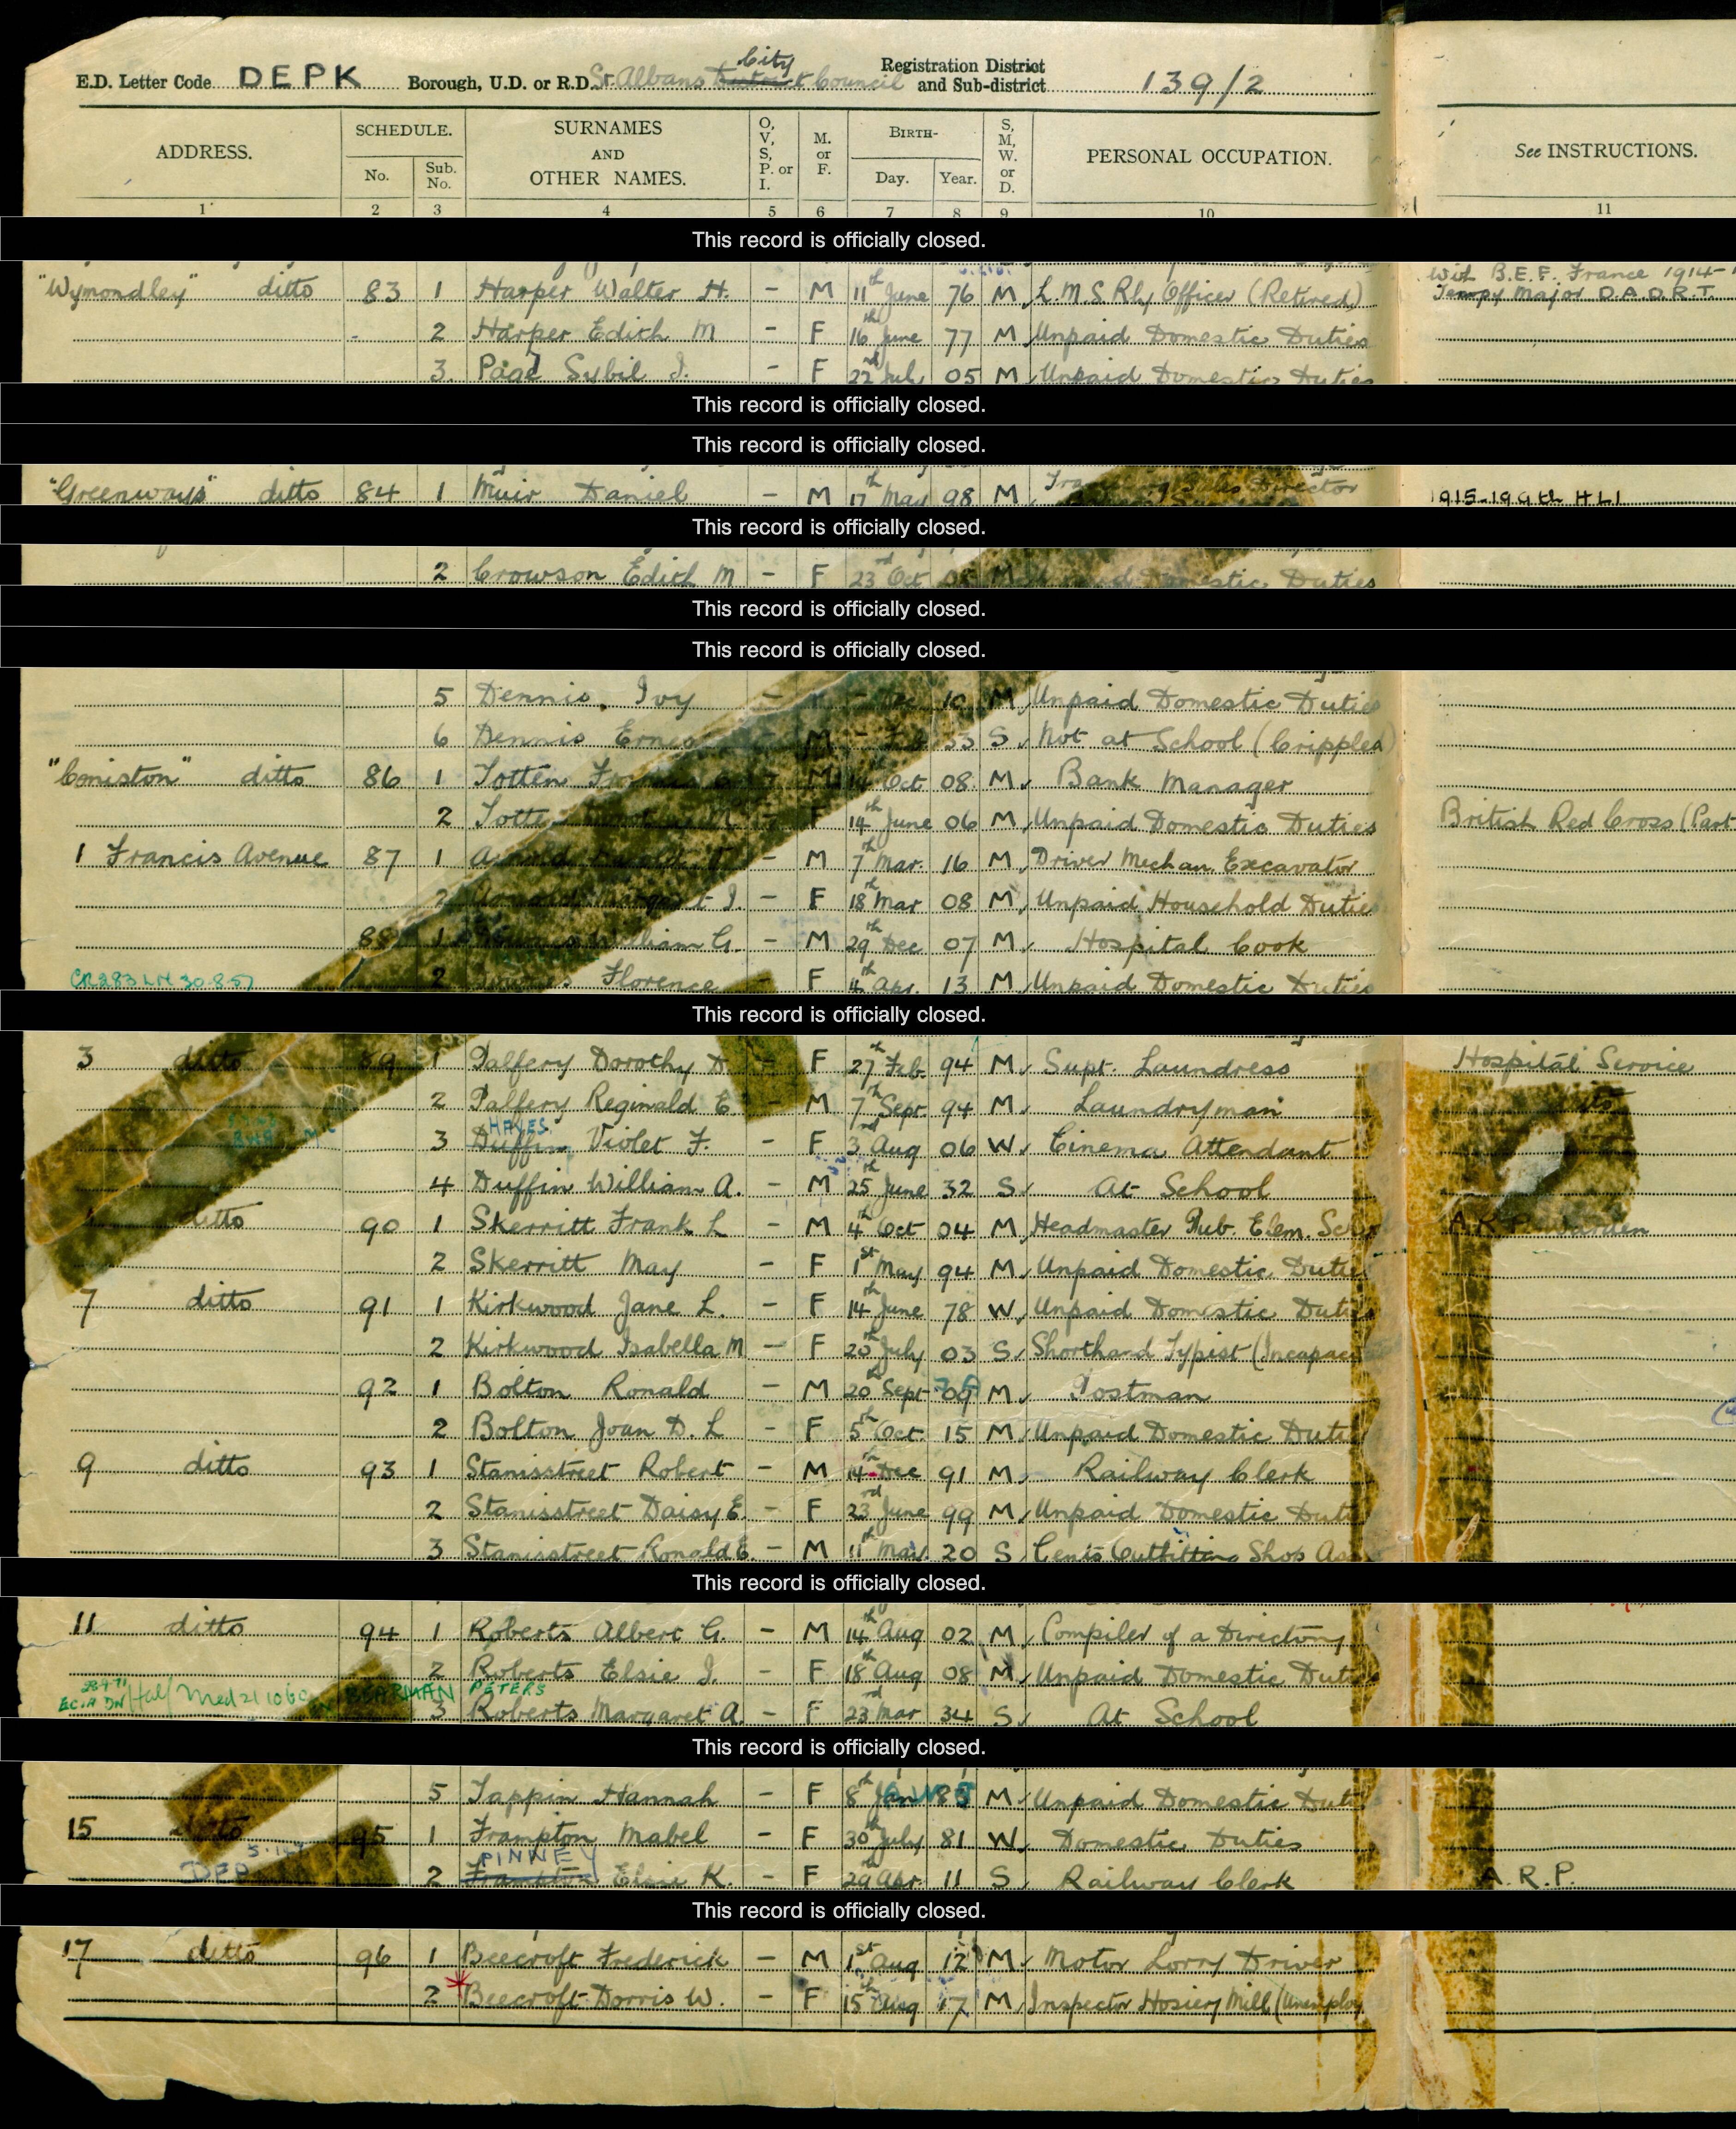 E.D. Letter Code DEPK Borough, U.D. or R.D. St. Albans District City Council Registration District and Sub-district 139/2
ADDRESS. SCHEDULE. No. Sub. No. SURNAMES AND OTHER NAMES. O, V, S, P. or I. M. or F. BIRTH- Day. Year. S, M, W. or D. PERSONAL OCCUPATION. See INSTRUCTIONS.
1 2 3 4 5 6 7 8 9 10 11
This record is officially closed.
"Wymondley" ditto 83 1 Harper Walter H. - M 11th June 76 M L.M.S. Rly Officer (Retired) With B.E.F. France 1914-1
Tempy Major D.A.D.R.T.
2 Harper Edith M - F 16th June 77 M Unpaid Domestic Duties
3 Page Sybil J. - F 22nd July 05 M Unpaid Domestic Duties
This record is officially closed.
This record is officially closed.
"Greenways" ditto 84 1 Muir Daniel - M 17th May 98 M Director 1915-19 9th HLI
This record is officially closed.
2 Crowson Edith M - F 23rd Oct M Domestic Duties
This record is officially closed.
This record is officially closed.
5 Dennis, Ivy - 10 M Unpaid Domestic Duties
6 Dennis M 33 S Not at School (Cripples)
"Coniston" ditto 86 1 Totten M Oct 08 M Bank Manager
2 F 14th June 06 M Unpaid Domestic Duties British Red Cross (Part
1 Francis Avenue 87 1 - M 7th Mar. 16 M Driver Mechan Excavator
2 J. - F 18th Mar 08 M Unpaid Household Duties
88 1 William G. - M 29th Dec 07 M Hospital Cook
CR283 LN 30.8.57 2 Florence F 4th Apr. 13 M Unpaid Domestic Duties
This record is officially closed.
3 ditto 89 1 Palfery Dorothy D. - F 27th Feb 94 M Supt. Laundress Hospital Service
2 Palfery Reginald E. - M 7th Sept 94 M Laundryman
HAYES
3 Duffin Violet F. - F 3rd Aug 06 W Cinema Attendant
4 Duffin William A. - M 25th June 32 S At School
ditto 90 1 Skerritt Frank L - M 4th Oct 04 M Headmaster Pub. Elem. School A.R.P. Warden
2 Skerritt May - F 1st May 94 M Unpaid Domestic Duties
7 ditto 91 1 Kirkwood Jane L. - F 14th June 78 W Unpaid Domestic Duties
2 Kirkwood Isabella M - F 20th July 03 S Shorthand Typist (Incapac
92 1 Bolton Ronald - M 20th Sept 09 M Postman
2 Bolton Joan D. L - F 5th Oct. 15 M Unpaid Domestic Duti
9 ditto 93 1 Stanisstreet Robert - M 14th Dec 91 M Railway Clerk
2 Stanisstreet Daisy E. - F 23rd June 99 M Unpaid Domestic Duti
3 Stanisstreet Ronald E. - M 11th Mar. 20 S Gents Outfitting Shop As
This record is officially closed.
11 ditto 94 1 Roberts Albert G. - M 14th Aug 02 M Compiler of a Directory
2 Roberts Elsie J. - F 18th Aug 08 M Unpaid Domestic Duti
BEARMAN PETERS
3 Roberts Margaret A. - F 23rd Mar 34 S At School
This record is officially closed.
5 Tappin Hannah - F 8th Jan M Unpaid Domestic Duti
15 ditto 95 1 Frampton Mabel - F 30th July 81 W Domestic Duties
PINNEY
2 Frampton Elsie K. - F 29th Apr. 11 S Railway Clerk A.R.P.
This record is officially closed.
17 ditto 96 1 Beecroft Frederick - M 1st Aug 12 M Motor Lorry Driver
2 Beecroft Dorris W. - F 15th Aug 17 M Inspector Hosiery Mill (Unemploy